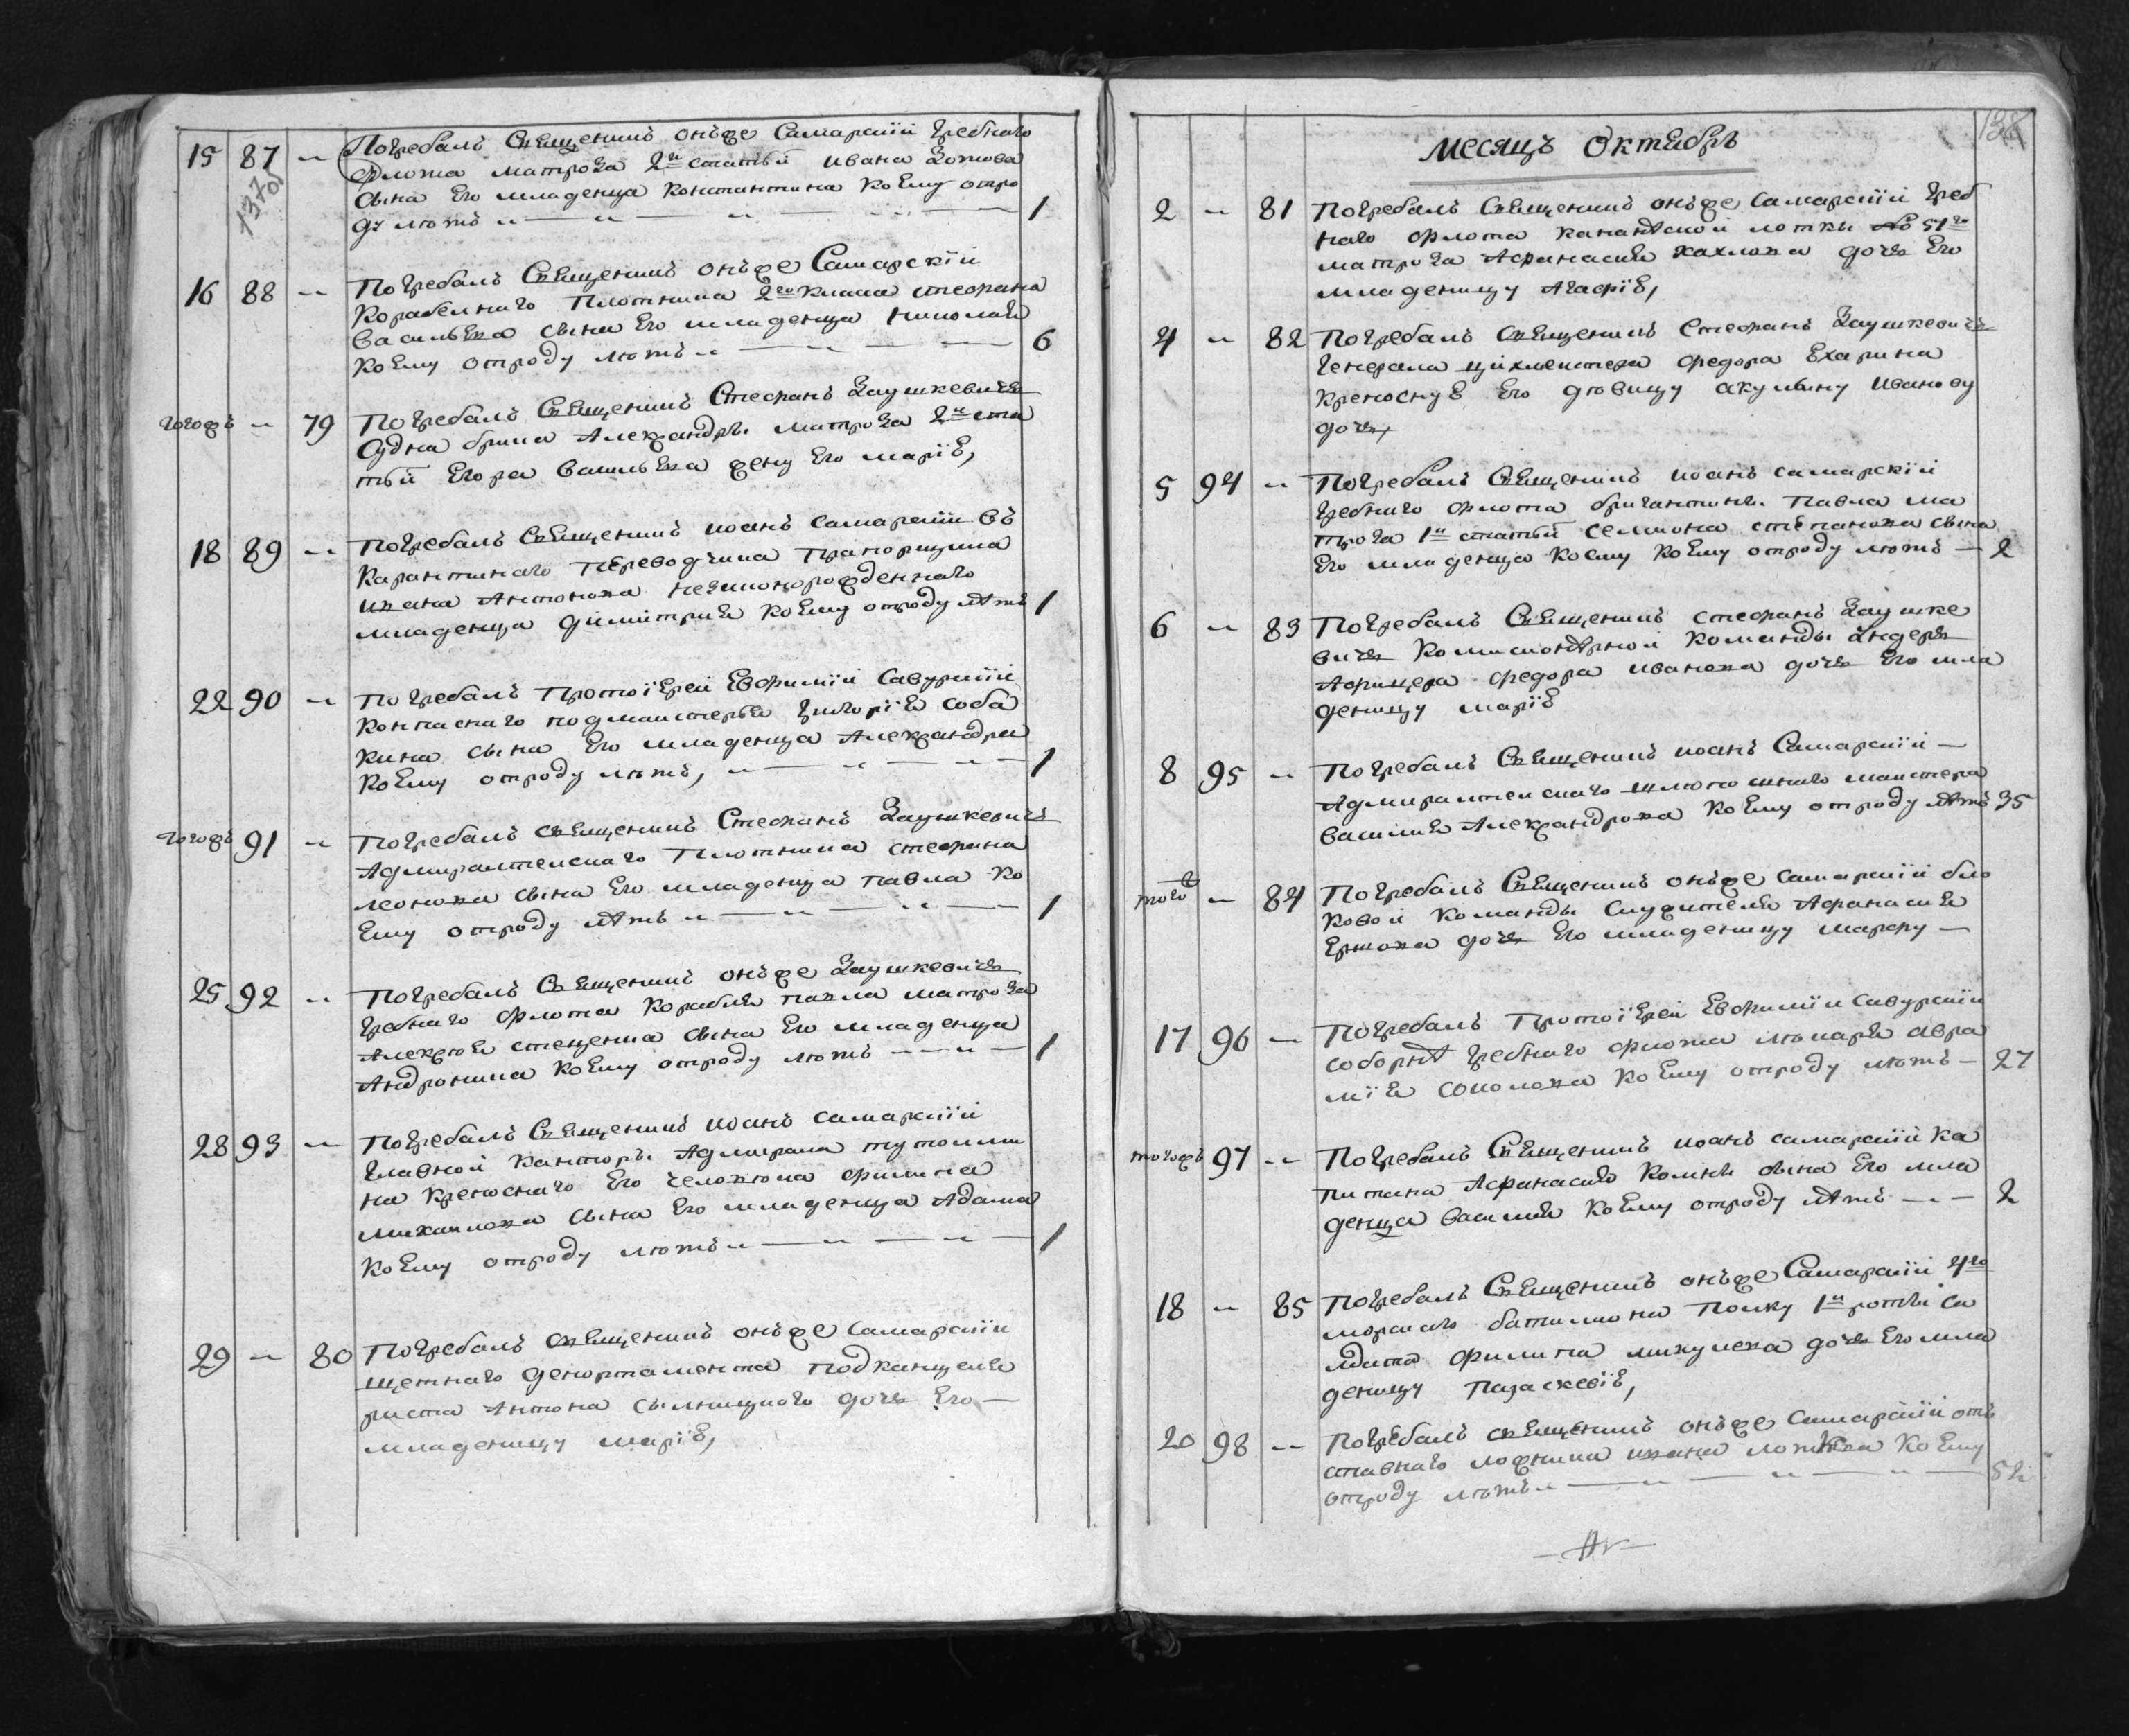 15 87 „ Погребалъ Священникъ онъже Самарскій гребнаго
137 об
флота матроза 2й статьи ивана Зотова
сына Его младенца константина коему отро
ду лѣтъ „ — „ — „ — „ — 1
16 88 „ Погребалъ Священникъ онъже Самарскій
корабелнаго плотника 2го класа стефана
васильева сына Его младенца николая
коему отроду лѣтъ „ — „ — 6
тогожъ „ 79 Погребалъ Священникъ Стефанъ Заушкевичь
судна брика Александръ матроза 2й ста
тьи Егора васильева жену Его марію,
18 89 „ Погребалъ Священникъ иоанъ самарскій въ
карантинаго переводчика прапорщика
ивана Антонова незаконорожденнаго
младенца димитрия коему отроду лѣтъ 1
22 90 „ Погребалъ протоіерей Евфимій савурскій
конпаснаго подмаистерья григорія соба
кина сына Его младенца Александра
коему отроду лѣтъ, „ — „ — „ — 1
тогожъ 91 „ Погребалъ священникъ Стефанъ Заушкевичъ
Адмиралтейскаго плотника стефана
леонова сына Его младенца павла ко
Ему отроду лѣтъ „ — „ — „ — 1
25 92 „ Погребалъ Священникъ онъже Заушкевичь
гребнаго флота корабля павла матроза
Алексѣя стеценка сына Его младенца
Андроника коему отроду лѣтъ — „ — 1
28 93 „ Погребалъ Священникъ иоанъ самарскій
главной канторы Адмирала
на крепоснаго Его человѣка филипа
михаилова сына Его младенца Адама
коему отроду лѣтъ „ — „ — „ — 1
29 „ 80 Погребалъ священникъ онъже самарскій
щетнаго депортамента подканцеля
риста Антона дочь Его —
младеницу марію,
138
месяцъ Октябръ
2 „ 81 Погребалъ Священникъ онъже самарскій греб
наго флота лотки № 51го
матроза Афанасия кахлова дочь Его
младеницу Агафію,
4 „ 82 Погребалъ священникъ Стефанъ Заушкевичь
генерала цейхмеистера федора Ехарина
крепосную Его дѣвицу акулину иванову
дочь,
5 94 „ Погребалъ Священникъ иоанъ самарскій
гребнаго флота бригантины павла ма
троза 1й статьи семиона степанова сына
Его младенца коему коему отроду лѣтъ — 2
6 „ 83 Погребалъ Священникъ стефанъ Заушке
вичь комисіонѣрной команды Ундеръ
Афицера федора иванова дочь Его мла
деницу марію
8 95 „ Погребалъ Священникъ иоанъ Самарскій —
Адмиралтейскаго маистера
василия Александрова коему отроду лѣтъ 35
того „ 84 Погребалъ Священникъ онъже самарскій бло
ковой команды служителя Афанасия
Ершова дочь Его младеницу марфу —
17 96 — Погребалъ Протоіерей Евфимій савурскій
соборнѣ гребнаго флота лѣкаря авра
мія соколова коему отроду лѣтъ — 27
тогожъ 97 „ Погребалъ Священникъ иоанъ самарскій ка
питана Афанасия сына Его мла
денца василия коему отроду лѣтъ — „ — 2
18 „ 85 Погребалъ Священникъ онъже Самарскій 4го
морскаго баталиона полку 1й роты са
лдата филипа микулева дочь Его мла
деницу параскевію,
20 98 „ Погребалъ священникъ онъже самарскій отъ
ставнаго ивана коему
отроду лѣтъ „ — „ — „ — „ — 52